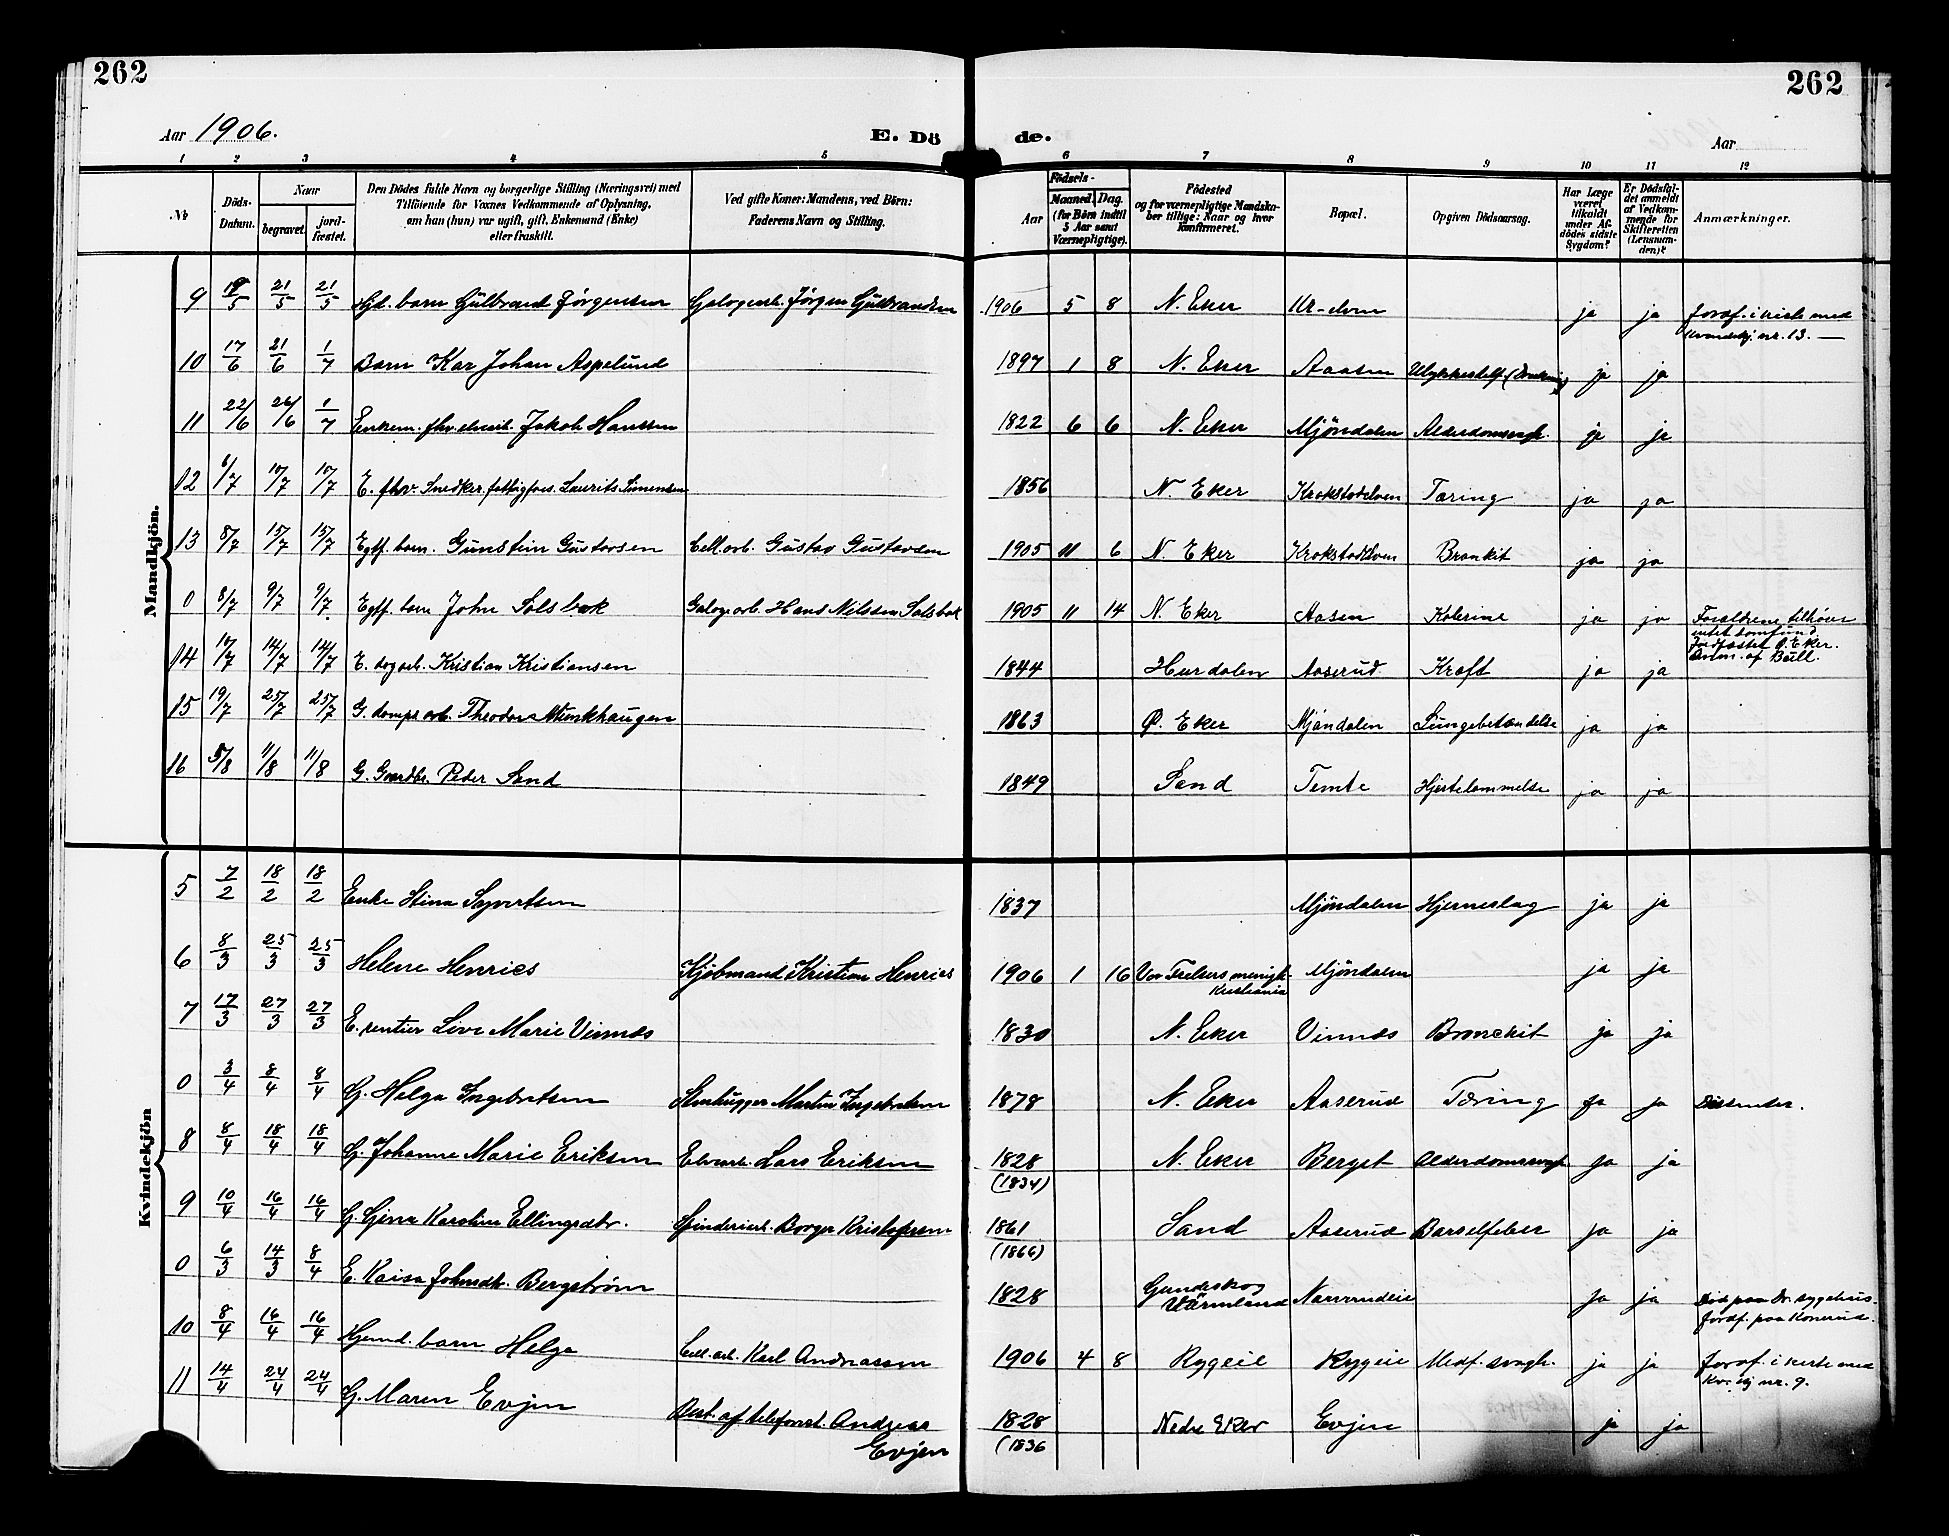 262
262
Aar 1906.
E. Dö
de.
Aar
1 2 3 4 5 6 7 8 9 10 11 12
№
Döds-Datum.
Naar
begravet.
jordfæstet.
Den Dödes fulde Navn og borgerlige Stilling (Næringsvei) med
Tilföiende for Voxnes Vedkommende af Oplysning,
om han (hun) var ugift, gift, Enkemand (Enke)
eller fraskilt.
Ved gifte Koner: Mandens, ved Börn:
Faderens Navn og Stilling.
Födsels-
Aar
Maaned. Dag.
(for Börn indtil
5 Aar samt
Værnepligtige).
Födested
og for værnepligtige Mandska-
ber tillige: Naar og hvor
konfirmeret.
Bopæl.
Opgiven Dödsaarsag.
Har Læge
været
tilkaldt
under Af-
dödes sidste
Sygdom?
Er Dödsfal-
det anmeldt
af Vedkom-
mende for
Skifteretten
(Lensman-
den)?
Anmærkninger.
Mandkjön.
9 19/5 21/5 21/5 Hjd. barn Gulbrand Jörgensen Galogearb. Jörgen Gulbrandsen 1906 5 8 N. Eker ja ja jordf. i kiste med
Kvindekj. nr. 13. —
10 17/6 21/6 1/7 Barn Kar Johan Aspelund 1897 1 8 N. Eker Aasen Ulykkestilf. ja ja
11 22/6 26/6 1/7 Enkem. fhv. elvearb. Jakob Hanssen 1822 6 6 N. Eker Mjöndalen Alderdomssvagh. ja ja
12 6/7 10/7 10/7 E. fhv. Snedker, fattigfors. Laurits Simensen 1856 N. Eker Krokstadelven Tæring ja ja
13 8/7 15/7 15/7 Egtf. barn. Gunstein Gustavsen Cell.arb. Gustav Gustavsen 1905 11 6 N. Eker Krokstadelven Bronkit ja ja
0 8/7 9/7 9/7. Egtf. barn John Solsbak Galoge arb. Hans Nilssen Solsbak 1905 11 14 N. Eker Aasen Kolerine ja ja Forældrene tilhører
intet samfund.
Jordfæstet Ø. Eker.
Anm. af Bull.
14 10/7 14/7 14/7 E. dagarb. Kristian Kristiansen 1844 Hurdalen Aaserud Kræft ja ja
15 19/7 25/7 25/7 G. damps. arb. Theodor Munkhaugen 1863 Ø. Eker Mjöndalen Lungebetændelse ja ja
16 5/8 11/8 11/8 G. Gaardbr. Peder Sand 1849 Sand Temte Hjertelammelse ja ja
Kvindekjön
5 7/2 18/2 18/2 Enke Stina Syvertsen 1837 Mjöndalen Hjerneslag ja ja
6 8/3 25/3 25/3 Helene Henries Kjöbmand Kristian Henries 1906 1 16 Vor Frelsers menigh. Mjöndalen ja ja
Kristiania
7 17/3 27/3 27/3 E. rentier Live Marie Vinnæs 1830 N. Eker Vinnæs Bronchit ja ja
0 3/4 8/4 8/4 G. Helga Ingebretsen Stenhugger Martin Ingebretsen 1878 N. Eker Aaserud Tæring ja ja Dissenter.
8 8/4 18/4 18/4 G. Johanne Marie Eriksen Elvearb. Lars Eriksen 1828 N. Eker Berget Alderdomssvagh. ja ja
(1834)
9 10/4 16/4 16/4 G. Gina Karoline Ellingsdtr. Borger Kristofersen 1861 Sand Aaserud Barselfeber ja ja
(1866)
0 6/3 14/3 8/4 E. Kaisa Johnsdtr. Bergström 1828 Gundeskog
Värmland ja ja Död paa Dr. sygehus.
jordf. paa Konerud.
10 8/4 16/4 16/4 Hjemd. barn Helga Cell. arb. Karl Andreassen 1906 4 8 Rygeie Rygeie Medf. svagh. ja ja jordf. i kiste med
Kv. kj nr. 9.
11 14/4 24/4 24/4 G. Maren Evjen Best. af telefonst. Andreas
Evjen 1828 Nedre Eker Evjen ja ja
(1836